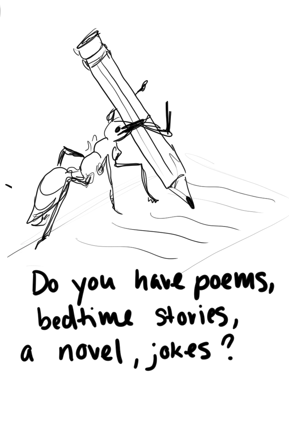 Do you have poems,
bedtime stories,
a novel, jokes?